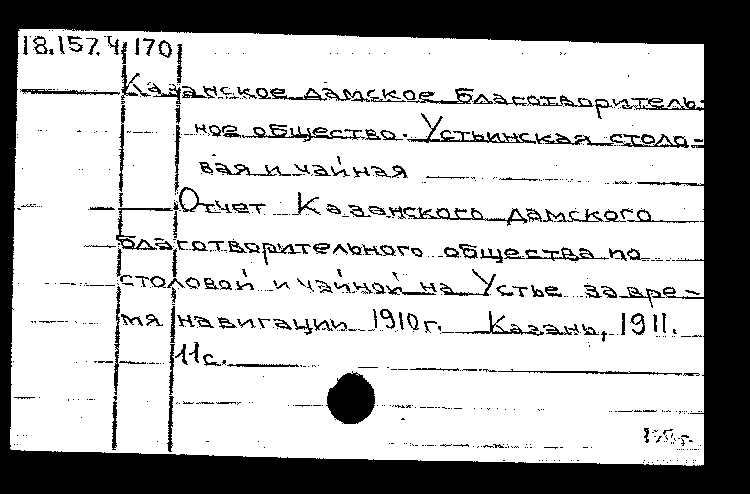 18.157.4/170
Казанское дамское благотворитель-
ное общество. Устьинская столо-
вая и чайная
Отчет Казанского дамского
благотворительного общества по
столовой и чайной на Устье за вре-
мя навигации 1910г. Казань, 1911.
11с.